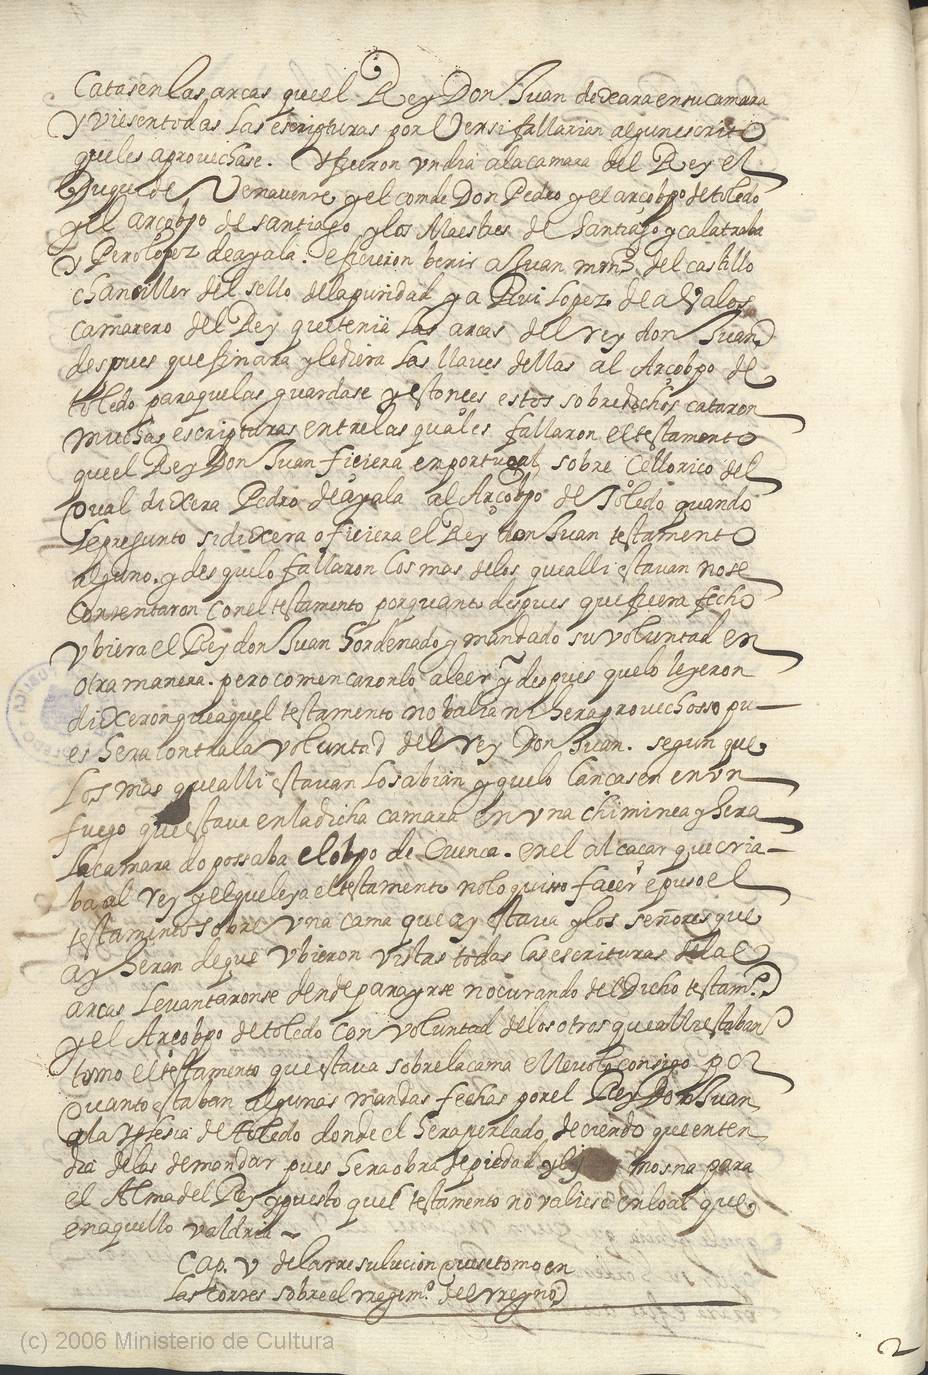 Catasen las arcas que el Rey Don Juan dexara en su camara
y viesen todas las escripturas por Ver si fallarian algun escrito
que les aprovechase. y fueron vn dia a la camara del Rey el
Duque de Venavente y el conde Don Pedro y el arçobpo de toledo
y el arçobpo de santiago y los Maestres de Santiago y calatraba
y Pero lopez de ayala. e ficieron benir a Juan mrnz del castillo
chanciller del sello de la puridad y a Rui Lopez de aValos
camarero del Rey que tenia las arcas del rey don Juan
despues que finara y le diera las llaves dellas al Arçobpo de
toledo para que las guardase y estonces estos sobredichos cataron
muchas escripturas entre las quales fallaron el testamento
que el Rey Don Juan ficiera en portugal sobre Cellorico del
qual dixera Pedro de ayala al Arçobpo de Toledo quando
le pregunto si dixera o ficiera el Rey don Juan testamento
alguno. y des que lo fallaron los mas de los que alli estavan no se
Contentaron con el testamento por quanto despues que fuera fecho
vbiera el Rey don Juan hordenado y mandado su voluntad en
otra manera. pero comencaronlo a leer y despues que lo leyeron
dixeron que aquel testamento no balia ni hera provechosso pu-
es hera contra la voluntad del rey Don Juan. segun que
Los mas que alli estavan lo sabian y que lo lancasen en vn
fuego que estava en la dicha camara en vna chiminea y hera
la camara do possaba el obpo de Cuenca. en el alcaçar que cria-
ba al rey y el que leya el testamento no lo quisso facer e puso el
testamento sobre vna cama que ay estava y los señores que
ay heran de que vbieron vistas todas las escrituras de la
arcas Levantaronse dende para yrse no curando del Dicho testamo
y el Arçobpo de toledo con voluntad de los otros que alli estaban
tomo el testamento que estava sobre la cama e llevolo consigo por
quanto estaban algunas mandas fechas por el Rey Don Juan
a la yglesia de toledo donde el hera perlado, deciendo que enten
dia de las demandar pues hera obra de piedad y mosna para
el Alma del Rey y puesto que el testamento no valiese en lo al que
en aquello valdria
Cap. V de la rresulucion que se tomo en
las Cortes sobre el rregimo del rreyno
2
(c) 2006 Ministerio de Cultura